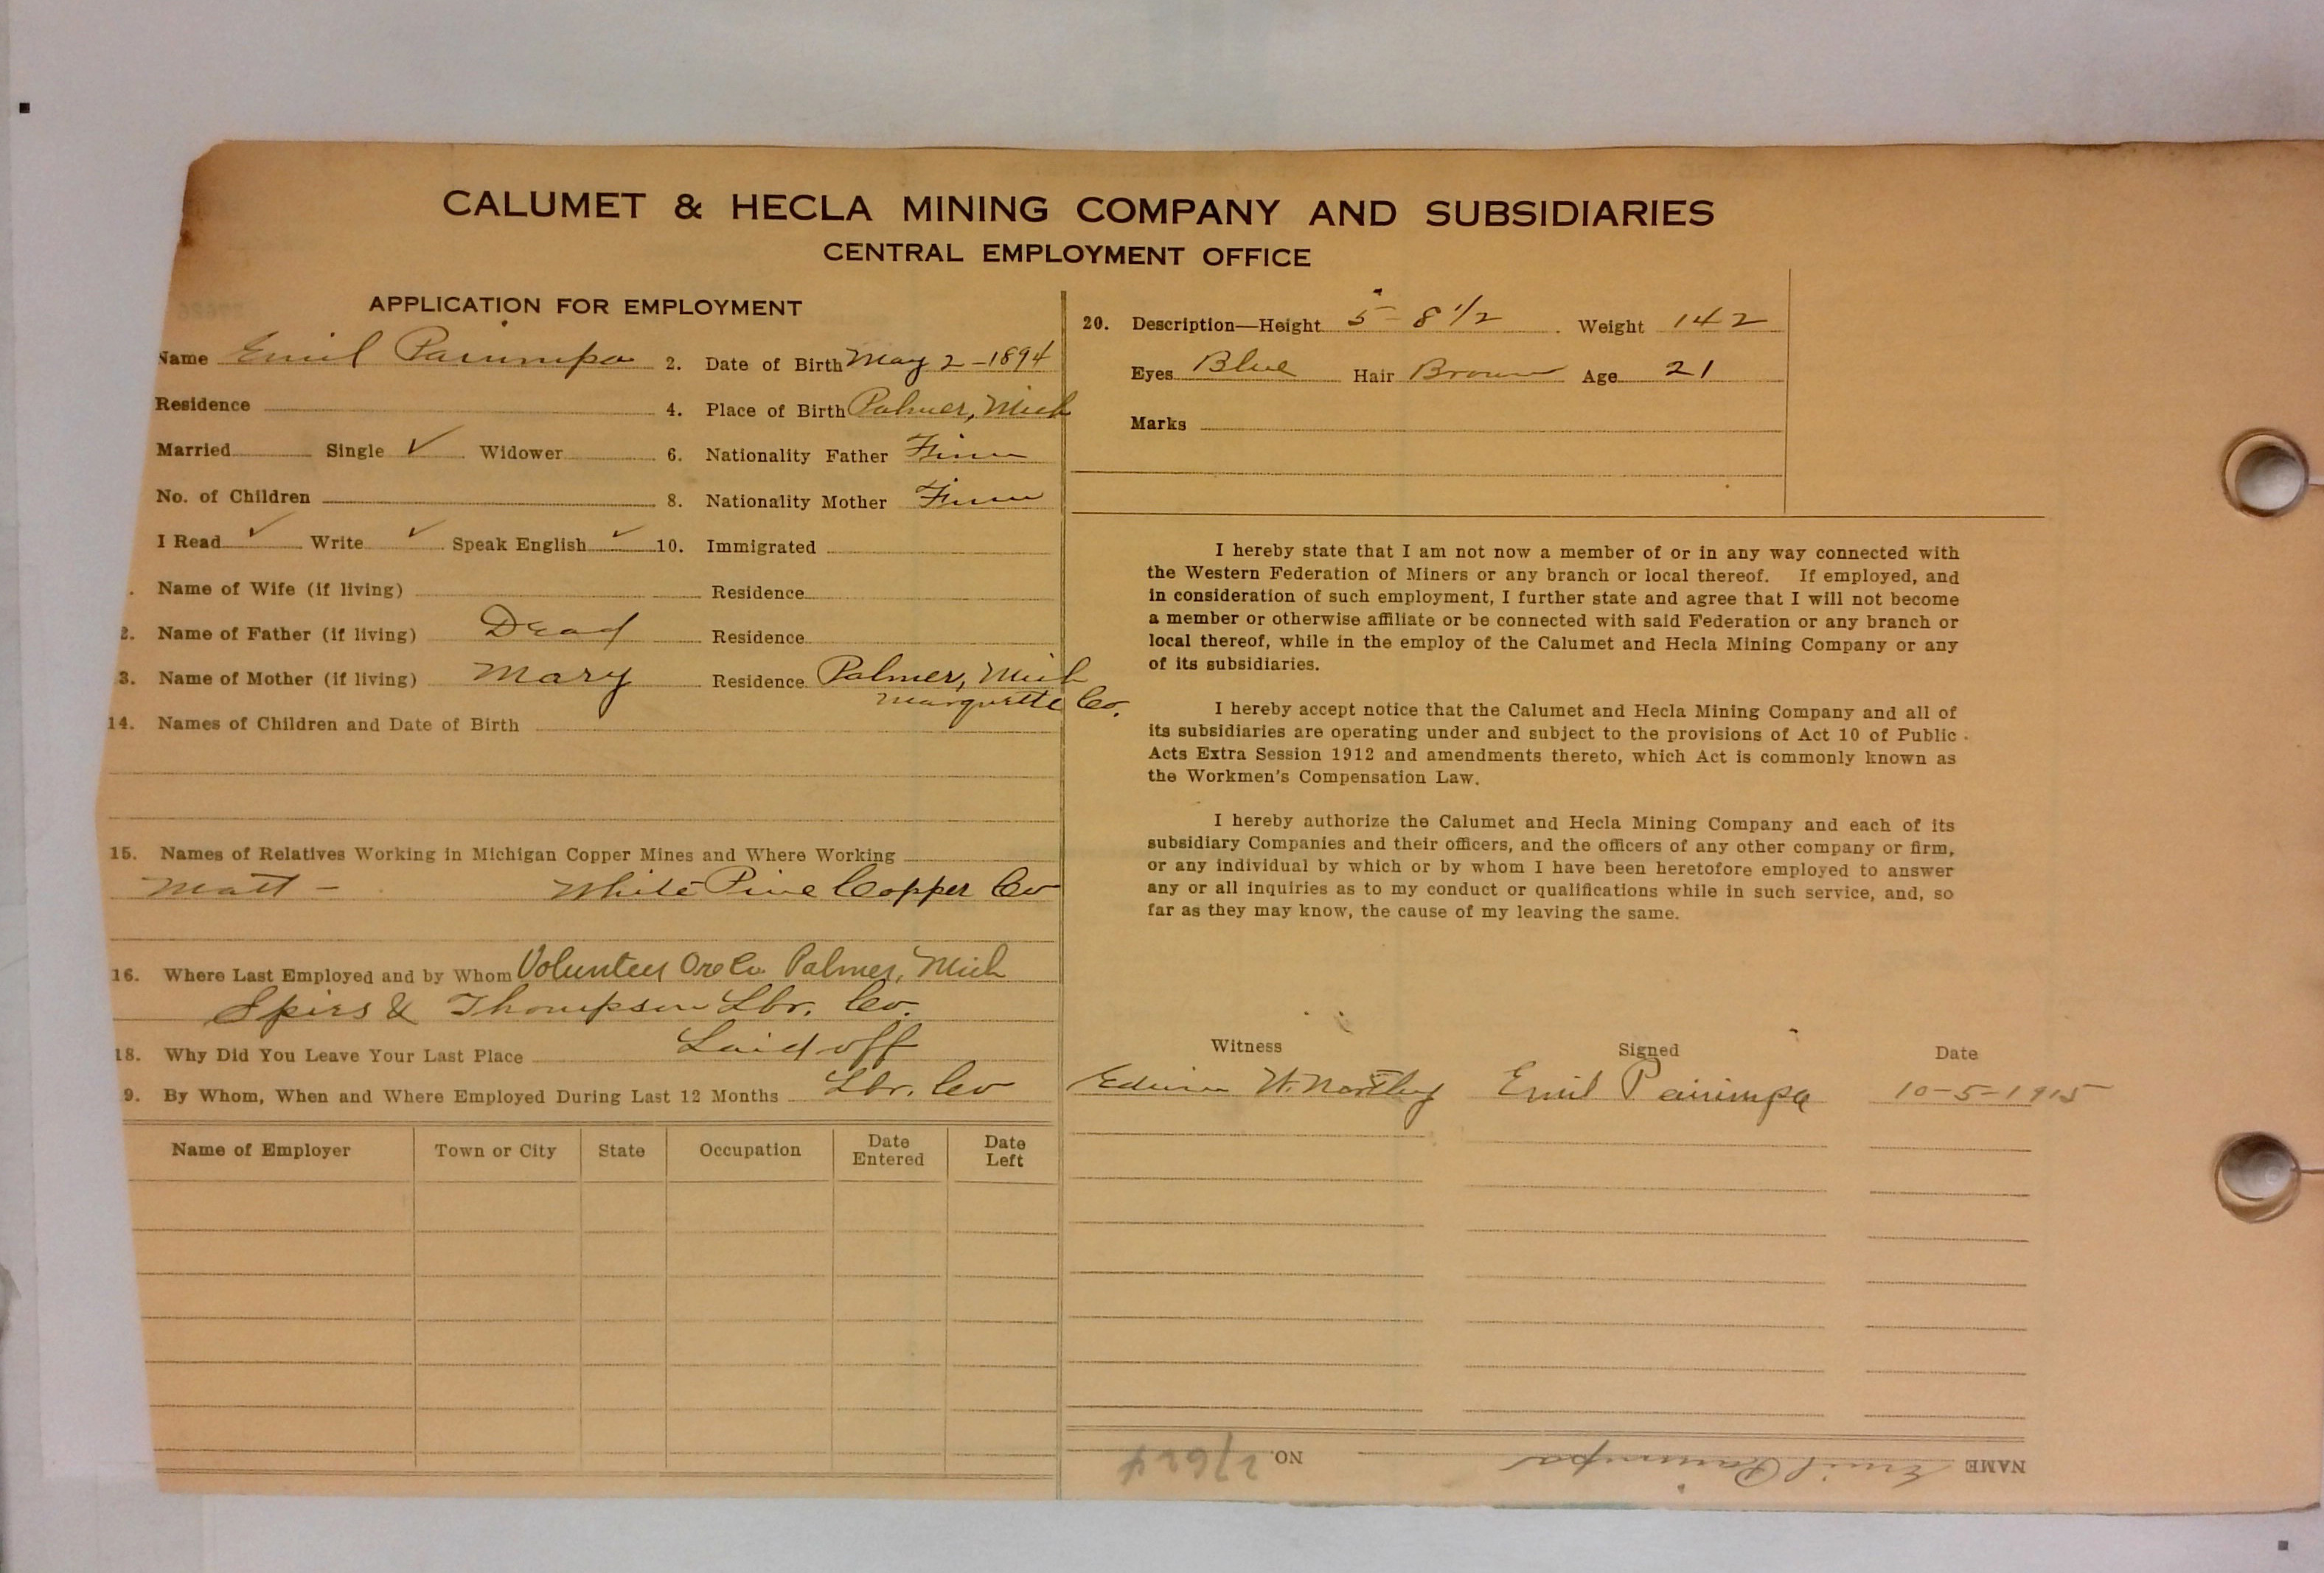 CALUMET & HECLA MINING COMPANY AND SUBSIDIARIES
CENTRAL EMPLOYMENT OFFICE
APPLICATION FOR EMPLOYMENT
Name Emil Pairimpa 2. Date of Birth May 2-1894
Residence 4. Place of Birth Palmer, Mich
Married Single ✓ Widower 6. Nationality Father Finn
No. of Children 8. Nationality Mother Finn
I Read ✓ Write ✓ Speak English ✓ 10. Immigrated
. Name of Wife (if living) Residence
2. Name of Father (if living) Dead Residence
3. Name of Mother (if living) Mary Residence Palmer, Mich
Marquette Co.
14. Names of Children and Date of Birth
15. Names of Relatives Working in Michigan Copper Mines and Where Working
Matt - White Pine Copper Co
16. Where Last Employed and by Whom Volunteer Ore Co Palmer, Mich
Spies & Thompson Lbr. Co.
18. Why Did You Leave Your Last Place Laid off
9. By Whom, When and Where Employed During Last 12 Months Lbr. Co
Name of Employer Town or City State Occupation Date Entered Date Left
20. Description—Height 5 - 8 1/2 . Weight 142
Eyes Blue Hair Brown Age 21
Marks
I hereby state that I am not now a member of or in any way connected with
the Western Federation of Miners or any branch or local thereof. If employed, and
in consideration of such employment, I further state and agree that I will not become
a member or otherwise affiliate or be connected with said Federation or any branch or
local thereof, while in the employ of the Calumet and Hecla Mining Company or any
of its subsidiaries.
I hereby accept notice that the Calumet and Hecla Mining Company and all of
its subsidiaries are operating under and subject to the provisions of Act 10 of Public
Acts Extra Session 1912 and amendments thereto, which Act is commonly known as
the Workmen's Compensation Law.
I hereby authorize the Calumet and Hecla Mining Company and each of its
subsidiary Companies and their officers, and the officers of any other company or firm,
or any individual by which or by whom I have been heretofore employed to answer
any or all inquiries as to my conduct or qualifications while in such service, and, so
far as they may know, the cause of my leaving the same.
Witness Signed Date
Edwin W. Northey Emil Pairimpa 10-5-1915
NAME Emil Pairimpa NO. 27624